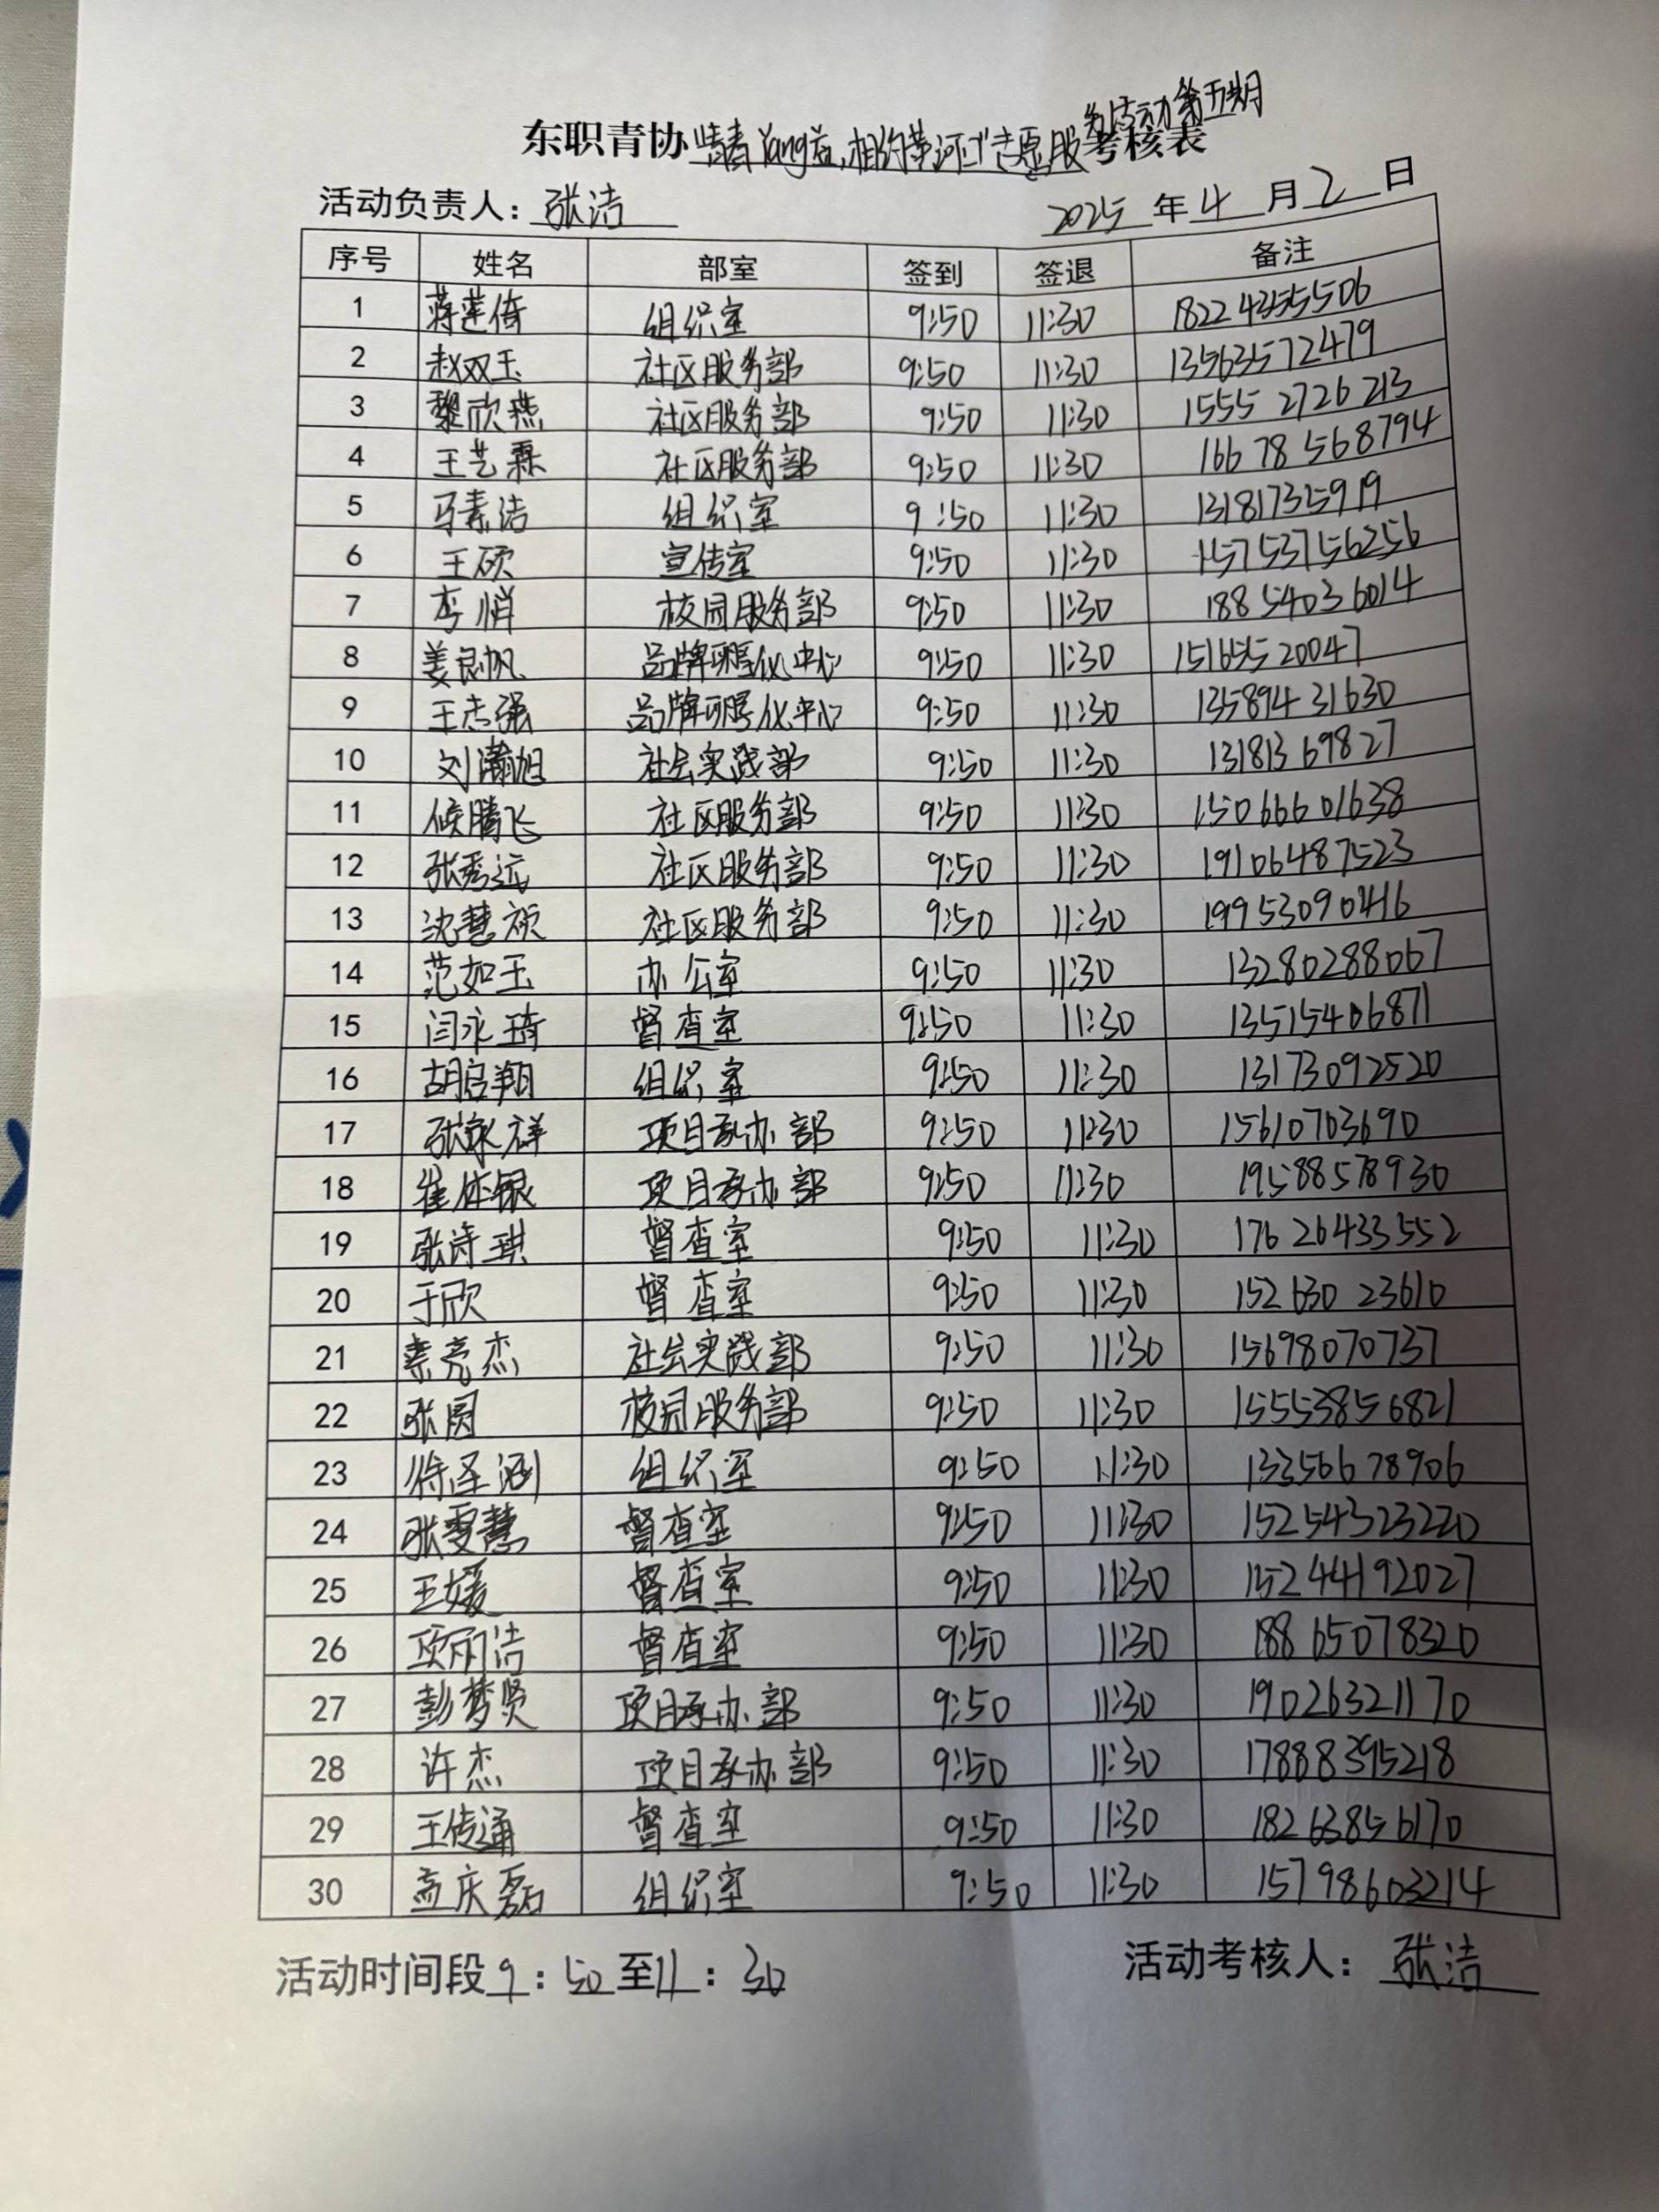 务活动第五期
东职青协"青春Yang益,相约黄河"志愿服考核表
活动负责人: 张洁 2025 年 4 月 2 日
序号 姓名 部室 签到 签退 备注
1 蒋莲倚 组织室 9:50 11:30 18224355506
2 赵双玉 社区服务部 9:50 11:30 13563572479
3 黎欣燕 社区服务部 9:50 11:30 15552726213
4 王艺霖 社区服务部 9:50 11:30 16678568794
5 马素洁 组织室 9:50 11:30 13181735919
6 王硕 宣传室 9:50 11:30 15753756256
7 李悄 校园服务部 9:50 11:30 18854036014
8 姜良帆 品牌孵化中心 9:50 11:30 15165520047
9 王志强 品牌孵化中心 9:50 11:30 13589431630
10 刘瀚旭 社会实践部 9:50 11:30 13181369827
11 候腾飞 社区服务部 9:50 11:30 15066601638
12 张秀远 社区服务部 9:50 11:30 19106487523
13 沈慧颀 社区服务部 9:50 11:30 19953090416
14 范如玉 办公室 9:50 11:30 13280288067
15 闫永琦 督查室 9:50 11:30 13515406871
16 胡启翔 组织室 9:50 11:30 13173092520
17 张永祥 项目承办部 9:50 11:30 15610703690
18 崔体银 项目承办部 9:50 11:30 19588578930
19 张诗琪 督查室 9:50 11:30 17626433552
20 于欣 督查室 9:50 11:30 15263023610
21 秦亮杰 社会实践部 9:50 11:30 15698070737
22 张圆 校园服务部 9:50 11:30 15553856821
23 徐圣涵 组织室 9:50 11:30 13356678906
24 张雯慧 督查室 9:50 11:30 15254323220
25 王媛 督查室 9:50 11:30 15244192027
26 项雨洁 督查室 9:50 11:30 18865078320
27 彭梦贤 项目承办部 9:50 11:30 19026321170
28 许杰 项目承办部 9:50 11:30 17888395218
29 王传通 督查室 9:50 11:30 18263856170
30 孟庆磊 组织室 9:50 11:30 15798603214
活动时间段 9 : 50 至 11 : 30 活动考核人: 张洁